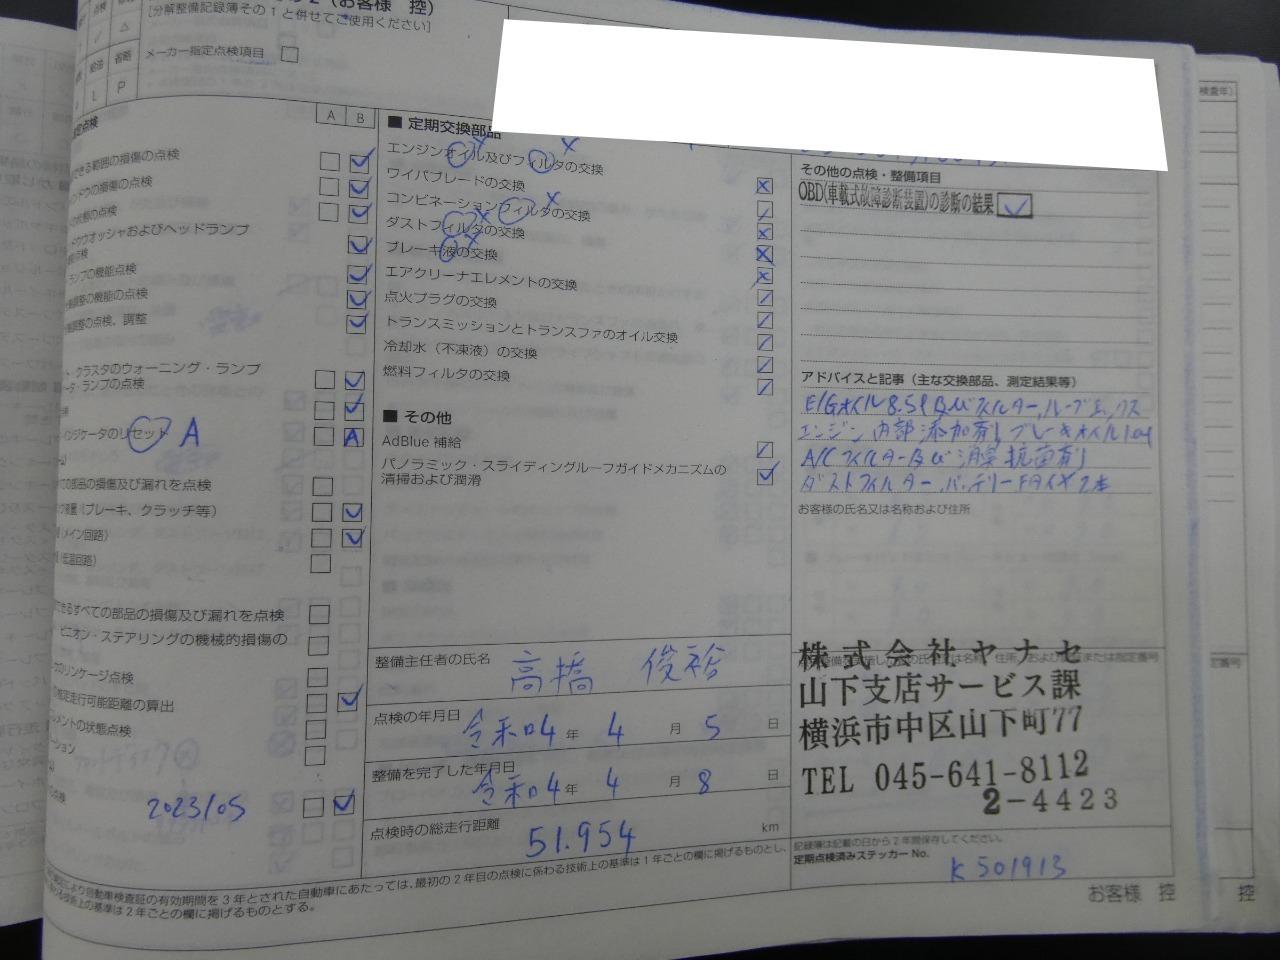 2（お客様　控）
［分解整備記録簿その１と併せてご使用ください］
点検
△
メーカー指定点検項目
給油
省略
L
P
A B
点検
できる範囲の損傷の点検
ンドウの損傷の点検
の状態の点検
ドウウオッシャおよびヘッドランプ
点検
ランプの機能点検
調整の機能の点検
調整の点検、調整
ト・クラスタのウォーニング・ランプ
ータ・ランプの点検
インジケータのリセット A
A
ての部品の損傷及び漏れを点検
液量（ブレーキ、クラッチ等）
（メイン回路）
（低温回路）
できるすべての部品の損傷及び漏れを点検
ピニオン・ステアリングの機械的損傷の
のリンケージ点検
の推定走行可能距離の算出
レメントの状態点検
ーション
の点検
2023/05
■ 定期交換部品
エンジンオイル及びフィルタの交換
ワイパブレードの交換
コンビネーションフィルタの交換
ダストフィルタの交換
ブレーキ液の交換
エアクリーナエレメントの交換
点火プラグの交換
トランスミッションとトランスファのオイル交換
冷却水（不凍液）の交換
燃料フィルタの交換
■ その他
AdBlue 補給
パノラミック・スライディングルーフガイドメカニズムの
清掃および潤滑
整備主任者の氏名 高橋　俊裕
点検の年月日 令和4 年 4 月 5 日
整備を完了した年月日 令和4 年 4 月 8 日
点検時の総走行距離 51.954 km
その他の点検・整備項目
OBD(車載式故障診断装置)の診断の結果
アドバイスと記事（主な交換部品、測定結果等）
E/Gオイル8.5l及びフィルター,
エンジン内部添加剤,ブレーキオイル
A/Cフィルター及び消臭抗菌剤
ダストフィルター,バッテリー
お客様の氏名又は名称および住所
株式会社ヤナセ
山下支店サービス課
横浜市中区山下町77
TEL 045-641-8112
2-4423
記録簿は記載の日から2年間保存してください。
定期点検済みステッカーNo.
K501913
により自動車検査証の有効期間を３年とされた自動車にあたっては、最初の２年目の点検に係わる技術上の基準は１年ごとの欄に掲げるものとし、
わる技術上の基準は２年ごとの欄に掲げるものとする。
お客様　控
控